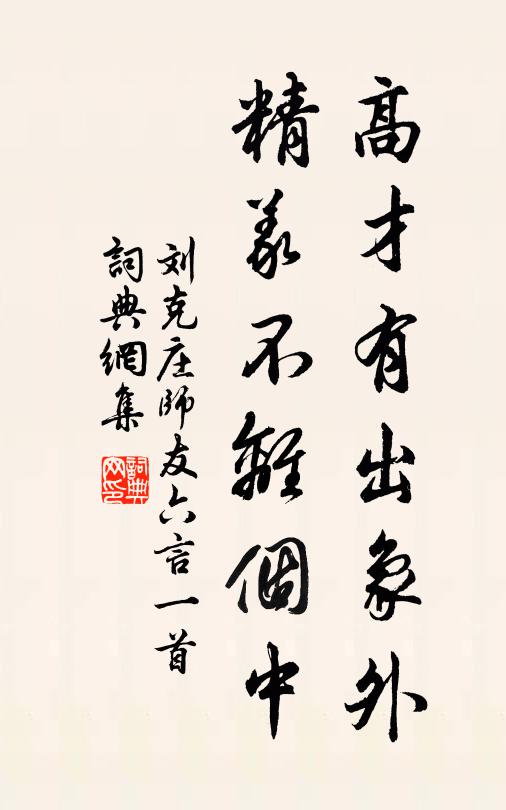 高才有出象外
精义不離個中
刘克庄師友六言一首
詞典網集
詞典网印